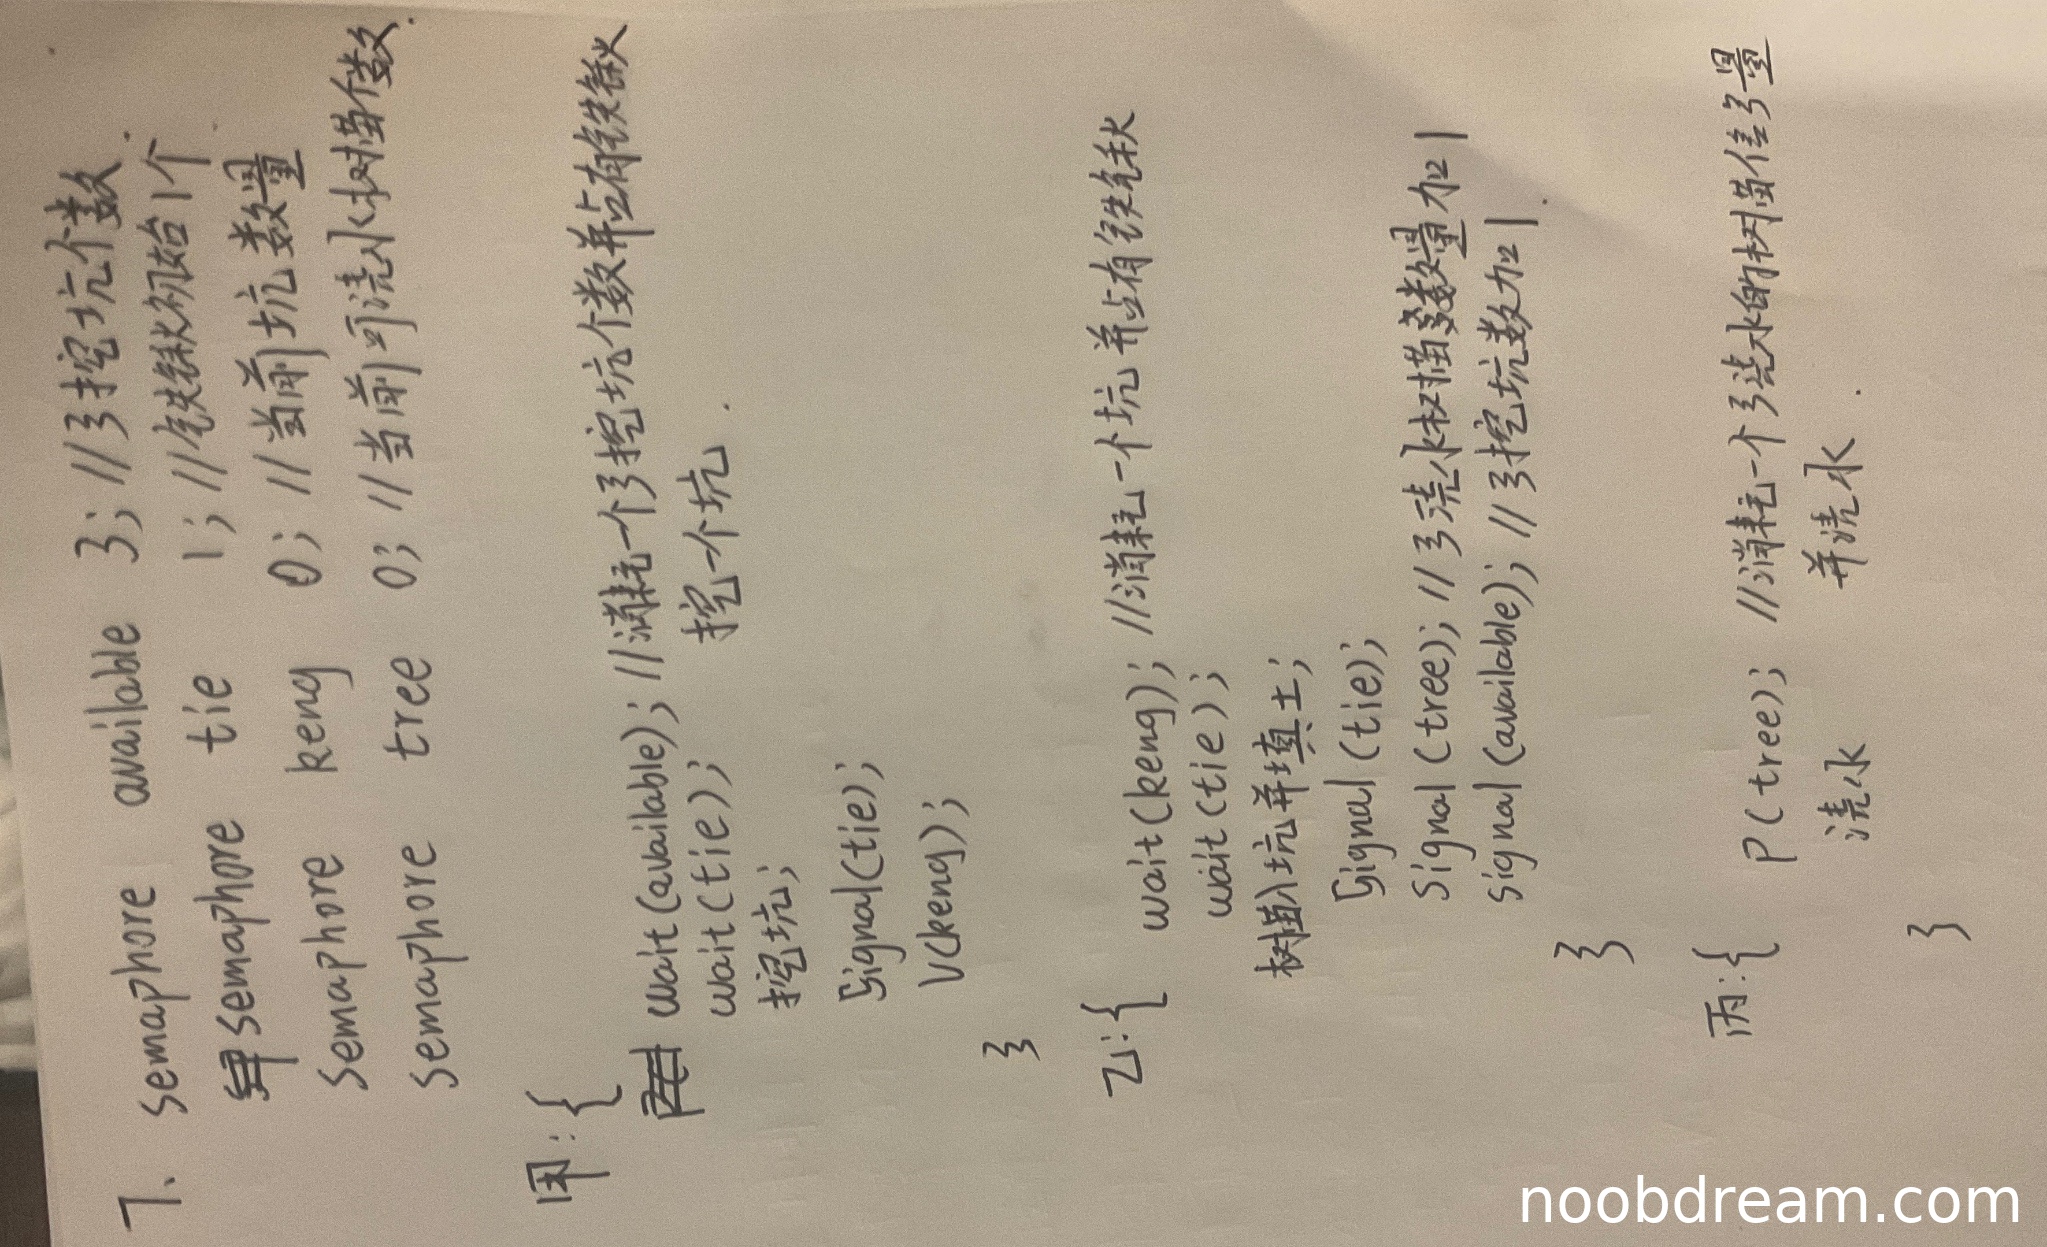 7、 semaphore available 3; //可挖坑个数.
semaphore tie 1; //铁锹初始1个
semaphore keng 0; //当前坑数量
semaphore tree 0; //当前可浇水树苗个数.
甲:{
wait(available); //消耗一个可挖坑个数并占有铁锹
wait(tie); 挖一个坑.
挖坑;
signal(tie);
V(keng);
}
乙:{ wait(keng); //消耗一个坑并占有铁锹
wait(tie);
树苗入坑并填土;
signal(tie);
signal(tree); //可浇水树苗数量加1
signal(available); //可挖坑数加1.
}
丙:{ P(tree); //消耗一个可浇水的树苗信号量
浇水 并浇水.
}
noobdream.com